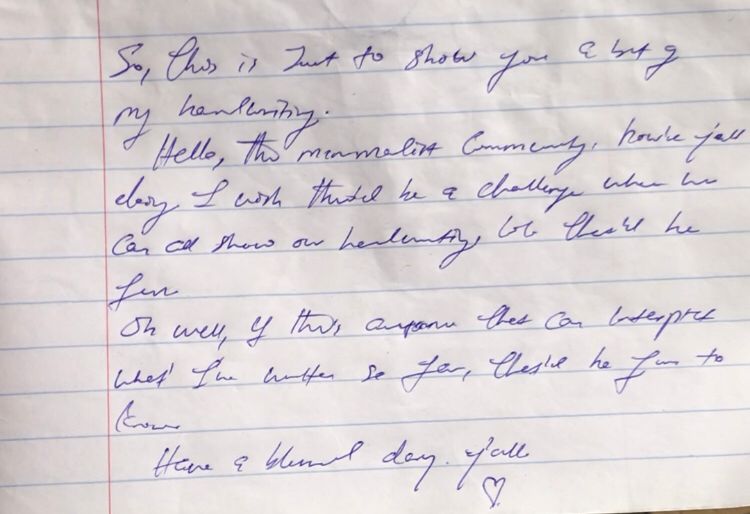 So, this is Just to show you a bit of
my handwriting.
Hello, the minimalist Community, how're y'all
doing I wish there'd be a challenge where we
Can all show our handwriting, lol that'll be
fun
Oh well, if there's anyone that can interpret
what I've written so far, that'd be fun to
know
Have a blessed day. y'all
♡